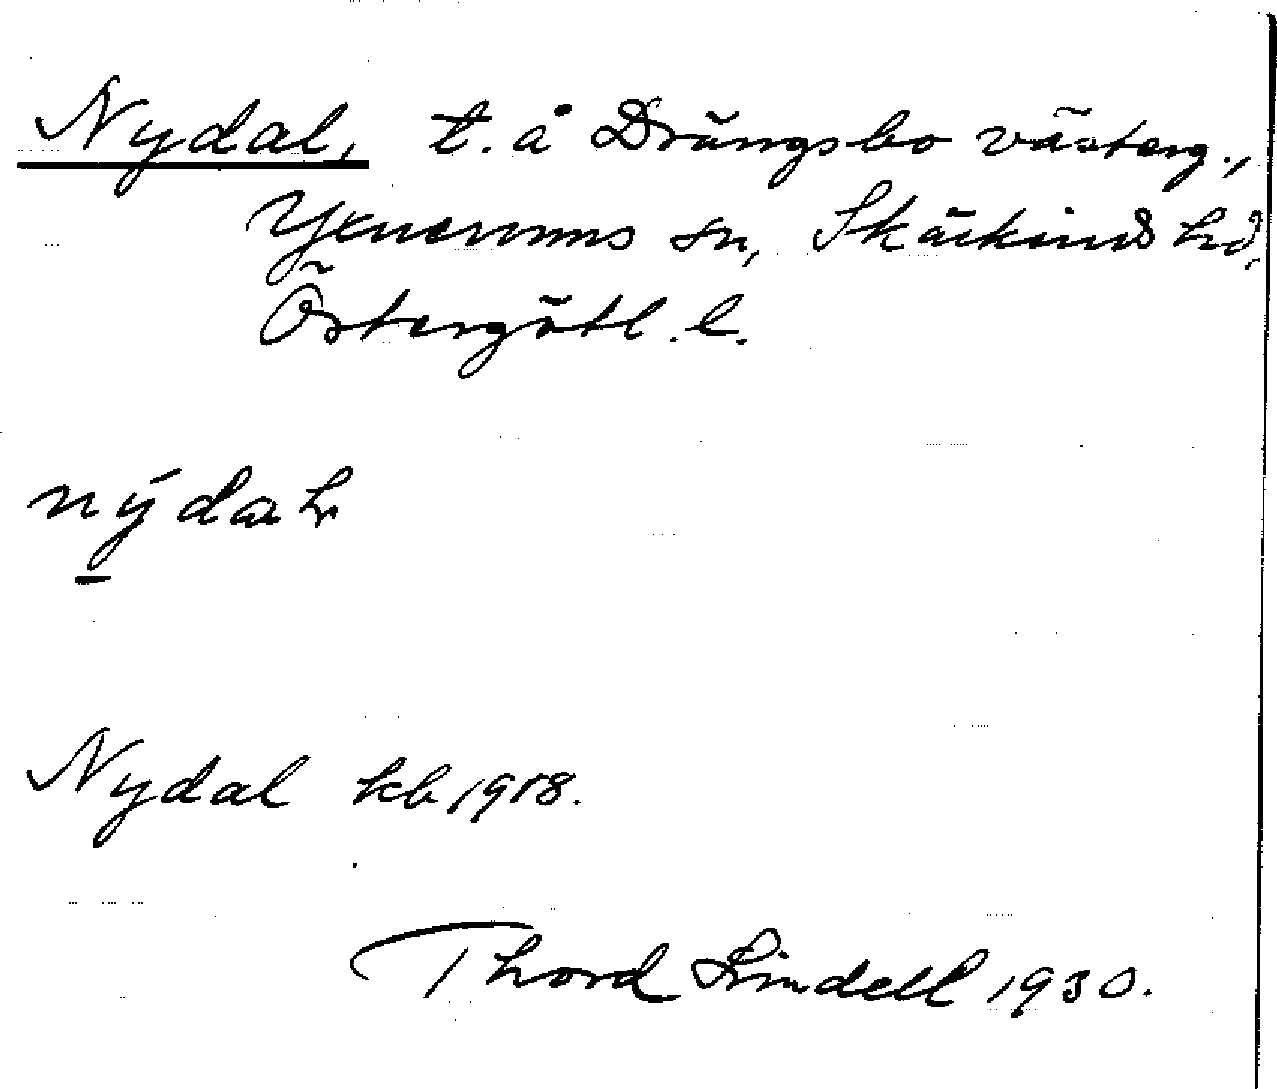 Nydal, t. å Drängsbo västerg.,
Yxnerums sn, Skärkinds hd,
Östergötl. l.
nýdaL
Nydal kb 1918.
Thord Lindell 1930.